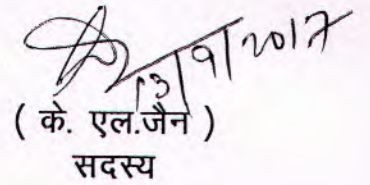 13/9/2017
( के. एल.जैन )
सदस्य